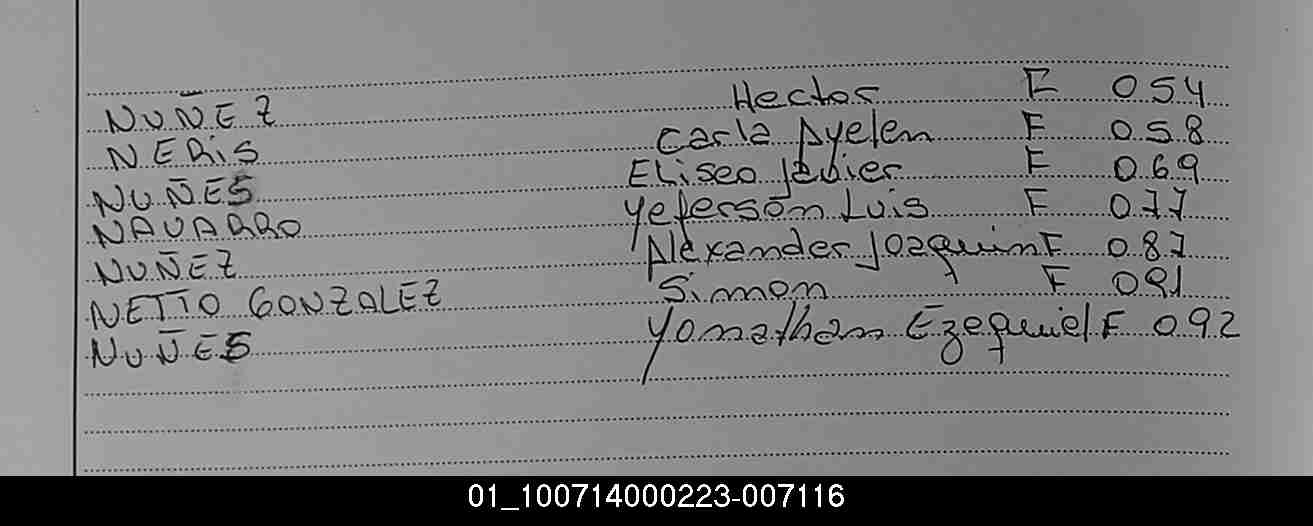 NUÑEZ Hector F 054
NERIS Carla Ayelen F 058
NUÑES Eliseo Javier F 069
NAVARRO Yeferson Luis F 077
NUÑEZ Alexander Joaquin F 087
NETTO GONZALEZ Simon F 091
NUÑES Yonathan Ezequiel F 092
01_100714000223-007116